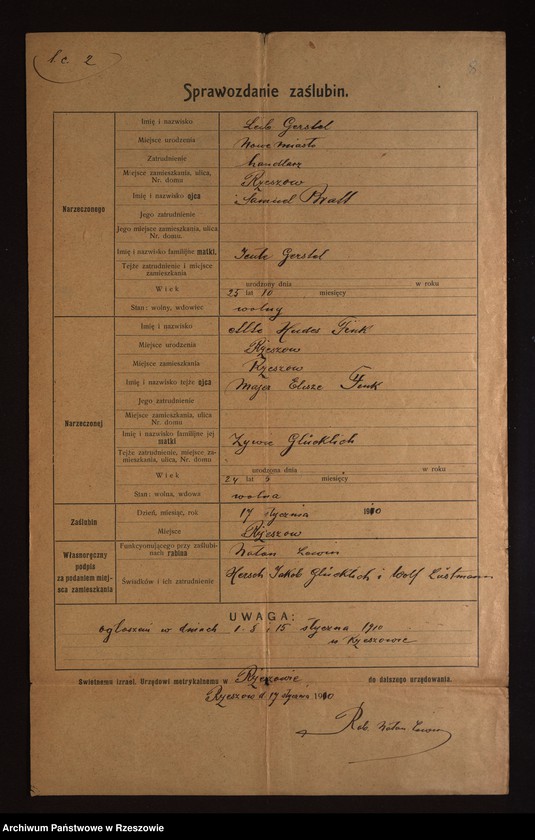 l.c. 2
8
Sprawozdanie zaślubin.
Narzeczonego
Imię i nazwisko Leib Gerstel
Miejsce urodzenia Nowe miasto
Zatrudnienie handlarz
Miejsce zamieszkania, ulica, Nr. domu Rzeszow
Imię i nazwisko ojca Samuel Bratt
Jego zatrudnienie
Jego miejsce zamieszkania, ulica Nr. domu.
Imię i nazwisko familijne matki. Gerstel
Tejże zatrudnienie i miejsce zamieszkania
Wiek urodzony dnia w roku
25 lat 10 miesięcy
Stan: wolny, wdowiec wolny
Narzeczonej
Imię i nazwisko Hudes Fenk
Miejsce urodzenia Rzeszow
Miejsce zamieszkania Rzeszow
Imię i nazwisko tejże ojca Majer Fenk
Jego zatrudnienie
Miejsce zamieszkania, ulica Nr. domu
Imię i nazwisko familijne jej matki Zywie Glücklich
Tejże zatrudnienie, miejsce zamieszkania, ulica, Nr. domu
Wiek urodzona dnia w roku
24 lat 5 miesięcy
Stan: wolna, wdowa wolna
Zaślubin
Dzień, miesiąc, rok 17 stycznia 1910
Miejsce Rzeszow
Własnoręczny podpis za podaniem miejsca zamieszkania
Funkcyonującego przy zaślubinach rabina Natan
Świadków i ich zatrudnienie Hersch Jakób Glücklich i Wolf Lüstmann
UWAGA:
ogłoszeń w dniach 1. 8 i 15 stycznia 1910
w Rzeszowie
Świetnemu izrael. Urzędowi metrykalnemu w Rzeszowie do dalszego urzędowania.
Rzeszow d. 17 stycznia 1910
Rab. Natan
Archiwum Państwowe w Rzeszowie